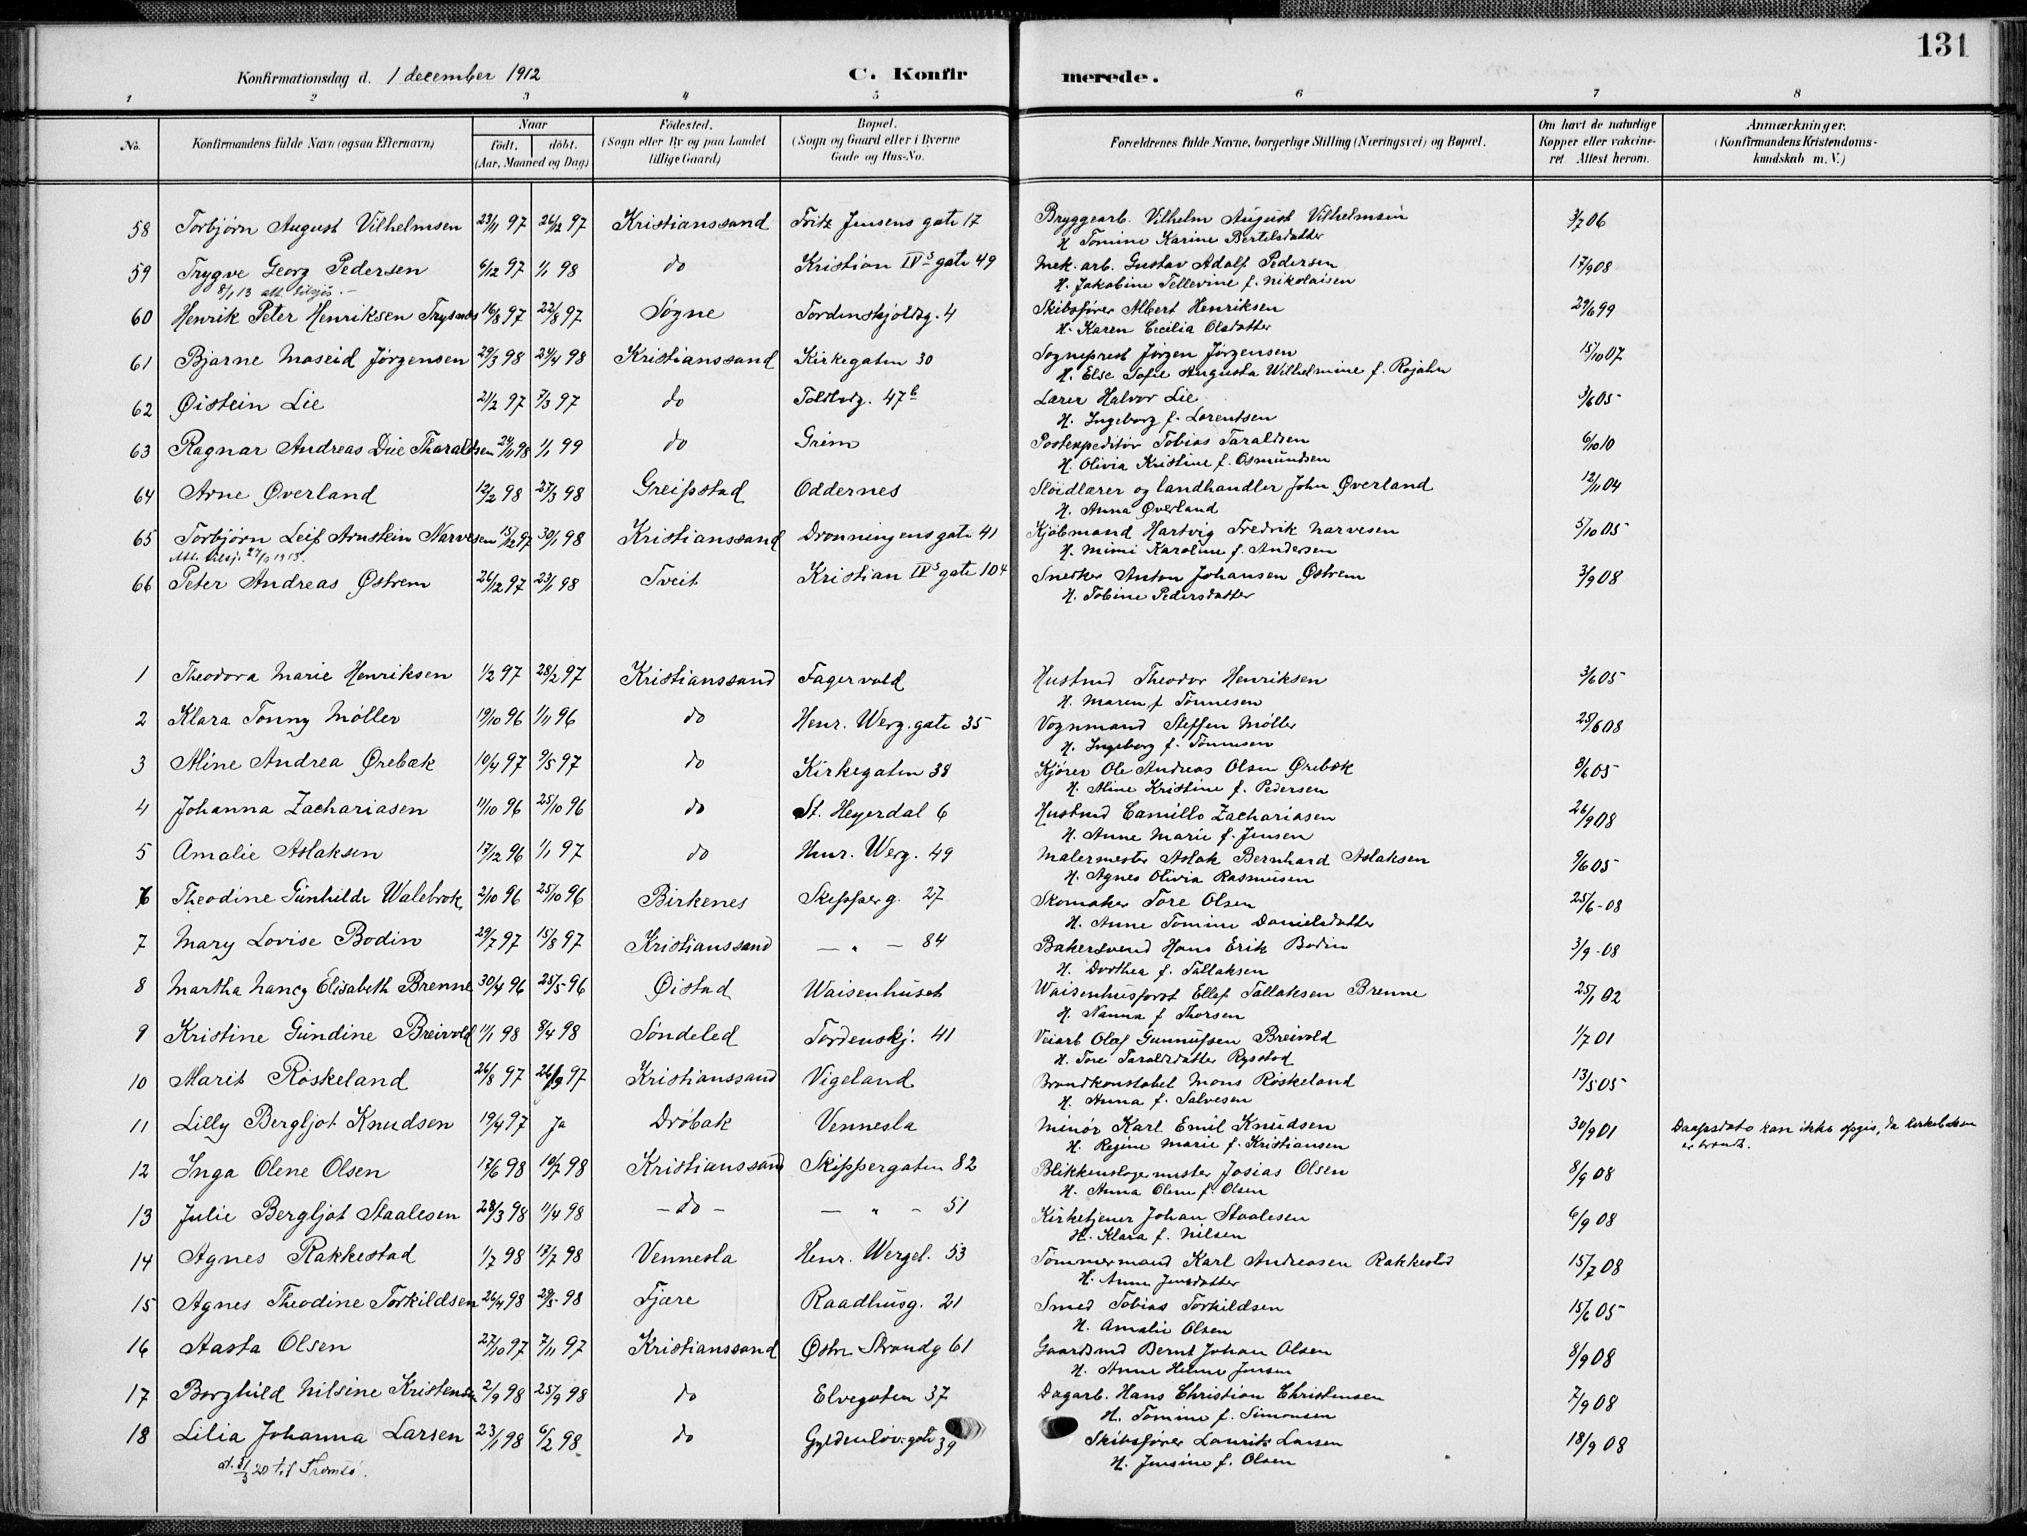 131
Konfirmationsdag d. 1 december 1912 C. Konfirmerede.
1 2 3 4 5 6 7 8
No. Konfirmandens fulde Navn (ogsaa Efternavn) Naar født. døbt. (Aar, Maaned og Dag) Fødested. (Sogn eller By og paa Landet tillige Gaard) Bopæl. (Sogn og Gaard eller i Byerne Gade og Hus-No. Forældrenes fulde Navne, borgerlige Stilling (Næringsvei) og Bopæl. Om havt de naturlige Kopper eller vakcineret. Attest herom. Anmærkninger. (Konfirmandens Kristendomskundskab m. V.)
58 Torbjørn August Vilhelmsen 23/11 97 26/12 97 Kristianssand Fritz Jensens gate 17 Bryggearb. Vilhelm August Vilhelmsen 3/7 06
H. Tomine Karine Bertelsdatter
59 Trygve Georg Pedersen 6/12 97 1/1 98 do Kristian IVs gate 49 Mek. arb. Gustav Adolf Pedersen 17/9 08
8/1 13 att. tilsjøs. H. Jakobine Tellevine f. Nikolaisen
60 Henrik Peter Henriksen Trysnes 16/8 97 22/8 97 Søgne Tordenskjoldsg. 4 Skibsfører Albert Henriksen 29/6 99
H. Karen Cecilia Olsdatter
61 Bjarne Moseid Jørgensen 29/3 98 24/4 98 Kristianssand Kirkegaten 30 Sogneprest Jørgen Jørgensen 15/10 07
H. Else Sofie Augusta Wilhelmine f. Rojahn
62 Øistein Lie 21/2 97 7/3 97 do Toldbodg. 47b Lærer Halvor Lie 3/6 05
H. Ingeborg f. Lorentsen
63 Ragnar Andreas Due Tharaldsen 24/11 98 1/1 99 do Grim Postexpeditør Tobias Taraldsen 6/10 10
H. Olivia Kristine f. Osmundsen
64 Arne Øverland 12/2 98 27/3 98 Greipstad Oddernes Sløidlærer og landhandler John Øverland 12/11 04
H. Anna Øverland
65 Torbjørn Leif Arnstein Narvesen 15/12 97 30/1 98 Kristianssand Dronningens gate 41 Kjøbmand Hartvig Fredrik Narvesen 5/10 05
H. Mimi Karoline f. Andersen
66 Peter Andreas Østrem 26/12 97 23/1 98 Tveit Kristian IVs gate 104 Snedker Anton Johansen Østrem 3/9 08
H. Tobine Pedersdatter
1 Theodora Marie Henriksen 1/2 97 28/2 97 Kristianssand Fagervold Husmd Theodor Henriksen 3/6 05
H. Maren f. Tønnesen
2 Klara Tonny Møller 19/10 96 1/11 96 do Henr. Werg. gate 35 Vognmand Steffen Møller 25/6 08
H. Ingeborg f. Tønnesen
3 Aline Andrea Ørebæk 10/4 97 9/5 97 do Kirkegaten 38 Kjører Ole Andreas Olsen Ørebæk 8/6 05
H. Aline Kristine f. Pedersen
4 Johanna Zachariasen 11/10 96 25/10 96 do St. Heyerdal 6 Husmd Camillo Zachariasen 26/9 08
H. Anne Marie f. Jensen
5 Amalie Aslaksen 17/12 96 1/1 97 do Henr. Werg. 49 Malermester Aslak Bernhard Aslaksen 9/6 05
H. Agnes Olivia Rasmusen
6 Theodine Gunhilde Walebrok 2/10 96 25/10 96 Birkenes Skipperg. 27 Skomaker Tore Olsen 25/6-08
H. Anne Tomine Danielsdatter
7 Mary Lovise Bodin 29/7 97 15/8 97 Kristianssand — " — 84 Bakersvend Hans Erik Bodin 3/9-08
H. Dorthea f. Tallaksen
8 Martha Nancy Elisabeth Brenne 30/4 96 25/5 96 Øistad Waisenhuset Waisenhusforst Ellef Tallaksen Brenne 25/1 02
H. Nanna f Thorsen
9 Kristine Gundine Breivold 11/1 98 8/4 98 Søndeled Tordenskj. 41 Veiarb Olaf Gunnufsen Breivold 1/7 01
H. Tore Taraldsdatter Rysstad
10 Marit Røskeland 26/8 97 26/9 97 Kristianssand Vigeland Brandkonstabel Mons Røskeland 13/5 05
H. Anna f. Salvesen
11 Lilly Bergljot Knudsen 19/4 97 Ja Drøbak Vennesla Minør Karl Emil Knudsen 30/9 01 Daapsdato kan ikke opgis, da kirkeboken
H. Regine Marie f. Kristiansen er brændt.
12 Inga Olene Olsen 17/6 98 10/7 98 Kristianssand Skippergaten 82 Blikkenslagermester Josias Olsen 8/9 08
H. Anna Olene f. Olsen
13 Julie Bergljot Staalesen 28/3 98 11/4 98 — do — — " — 51 Kirketjener Johan Staalesen 6/9 08
H. Klara f. Nilsen
14 Agnes Rakkestad 1/7 98 17/7 98 Vennesla Henr. Wergel. 53 Tømmermand Karl Andreasen Rakkestad 15/7 08
H. Anne Jensdatter
15 Agnes Theodine Torkildsen 26/4 98 29/5 98 Fjære Raadhusg. 21 Smed Tobias Torkildsen 15/6 05
H. Amalie Olsen
16 Aasta Olsen 27/10 97 7/11 97 Kristianssand Østre Strandg 61 Gaardmd Bernt Johan Olsen 8/9 08
H. Anne Helene Jensen
17 Borghild Nilsine Kristensen 2/9 98 25/9 98 do Elvegaten 37 Dagarb. Hans Christian Christensen 7/9 08
H. Tomine f. Simonsen
18 Lilia Johanna Larsen 23/1 98 6/2 98 do Gyldenløv. gate 39 Skibsfører Laurits Larsen 18/9 08
at. 8/3 20 til Tromsø. H. Jensine f. Olsen